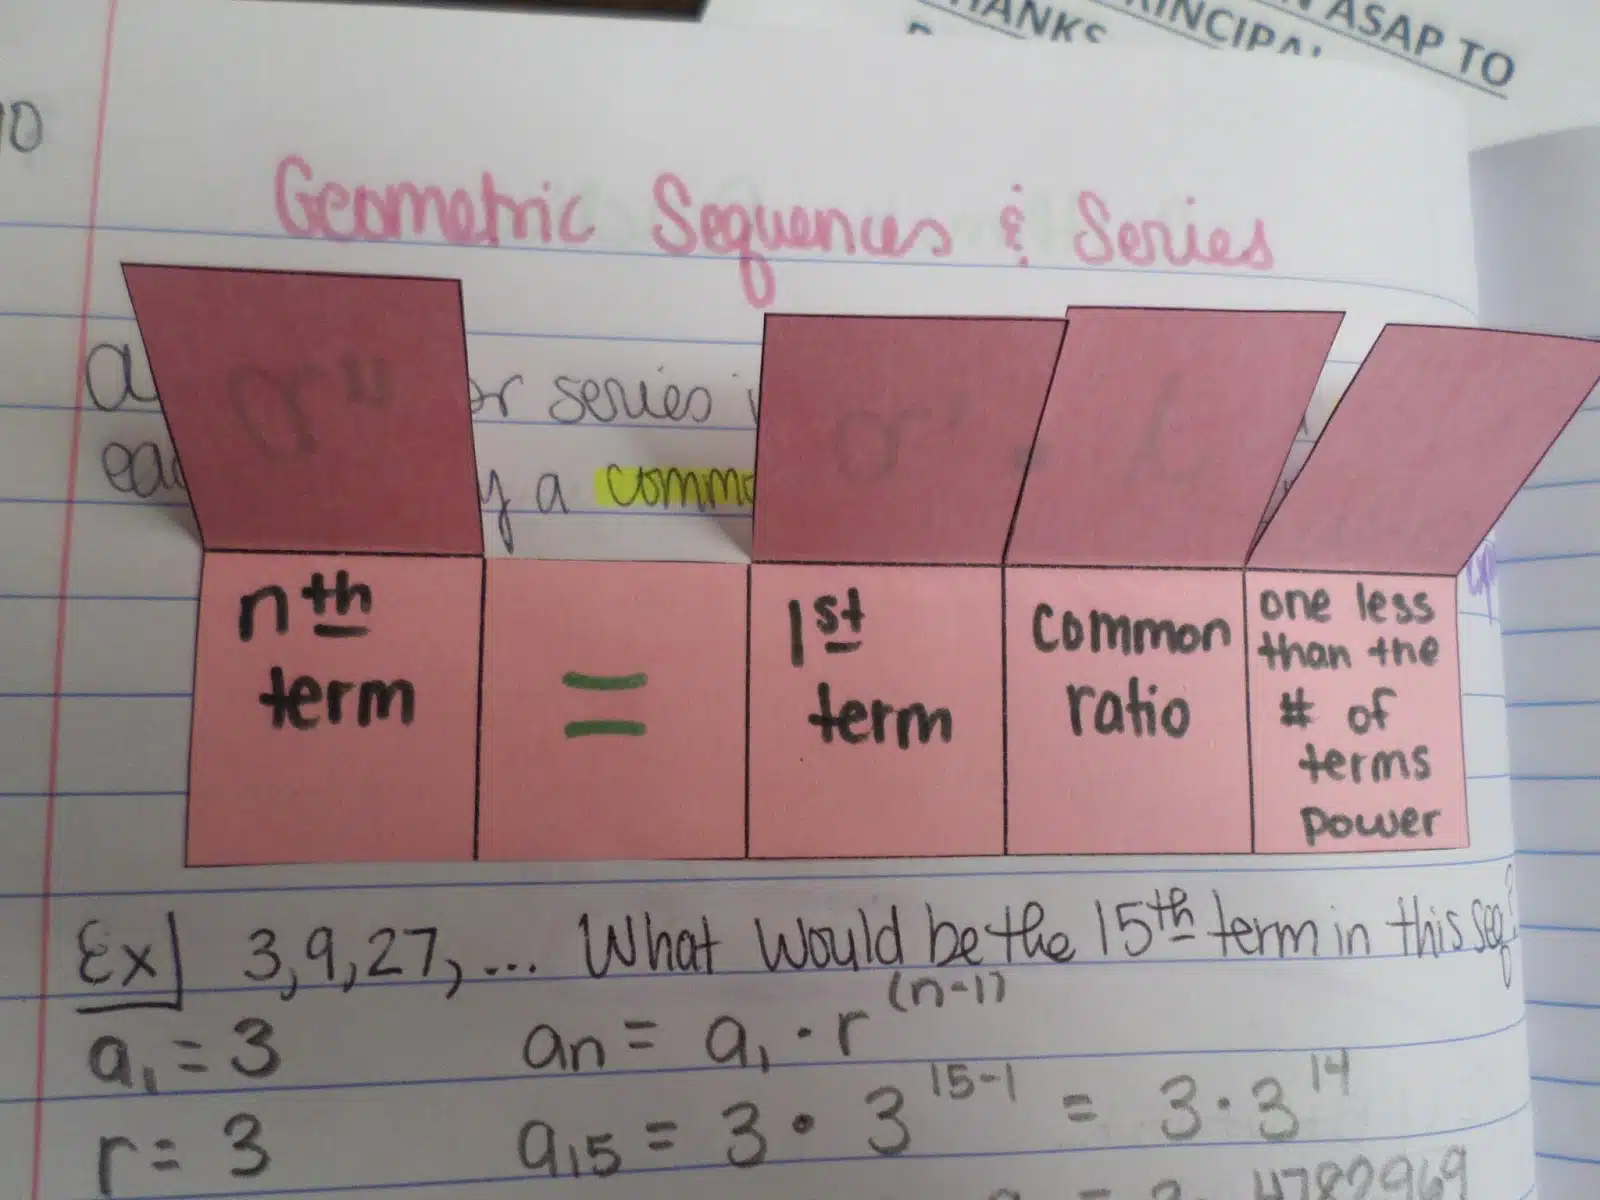 N ASAP TO
HANKS
RINCIPAL
10
Geometric Sequences & Series
a or series
y a
nth term
=
1st term
common ratio
one less than the # of terms power
Ex] 3, 9, 27, ... What would be the 15th term in this seq?
a₁ = 3
an = a₁ · r^(n-1)
r = 3
a₁₅ = 3 · 3^15-1 = 3 · 3^14
= 3 · 4782969